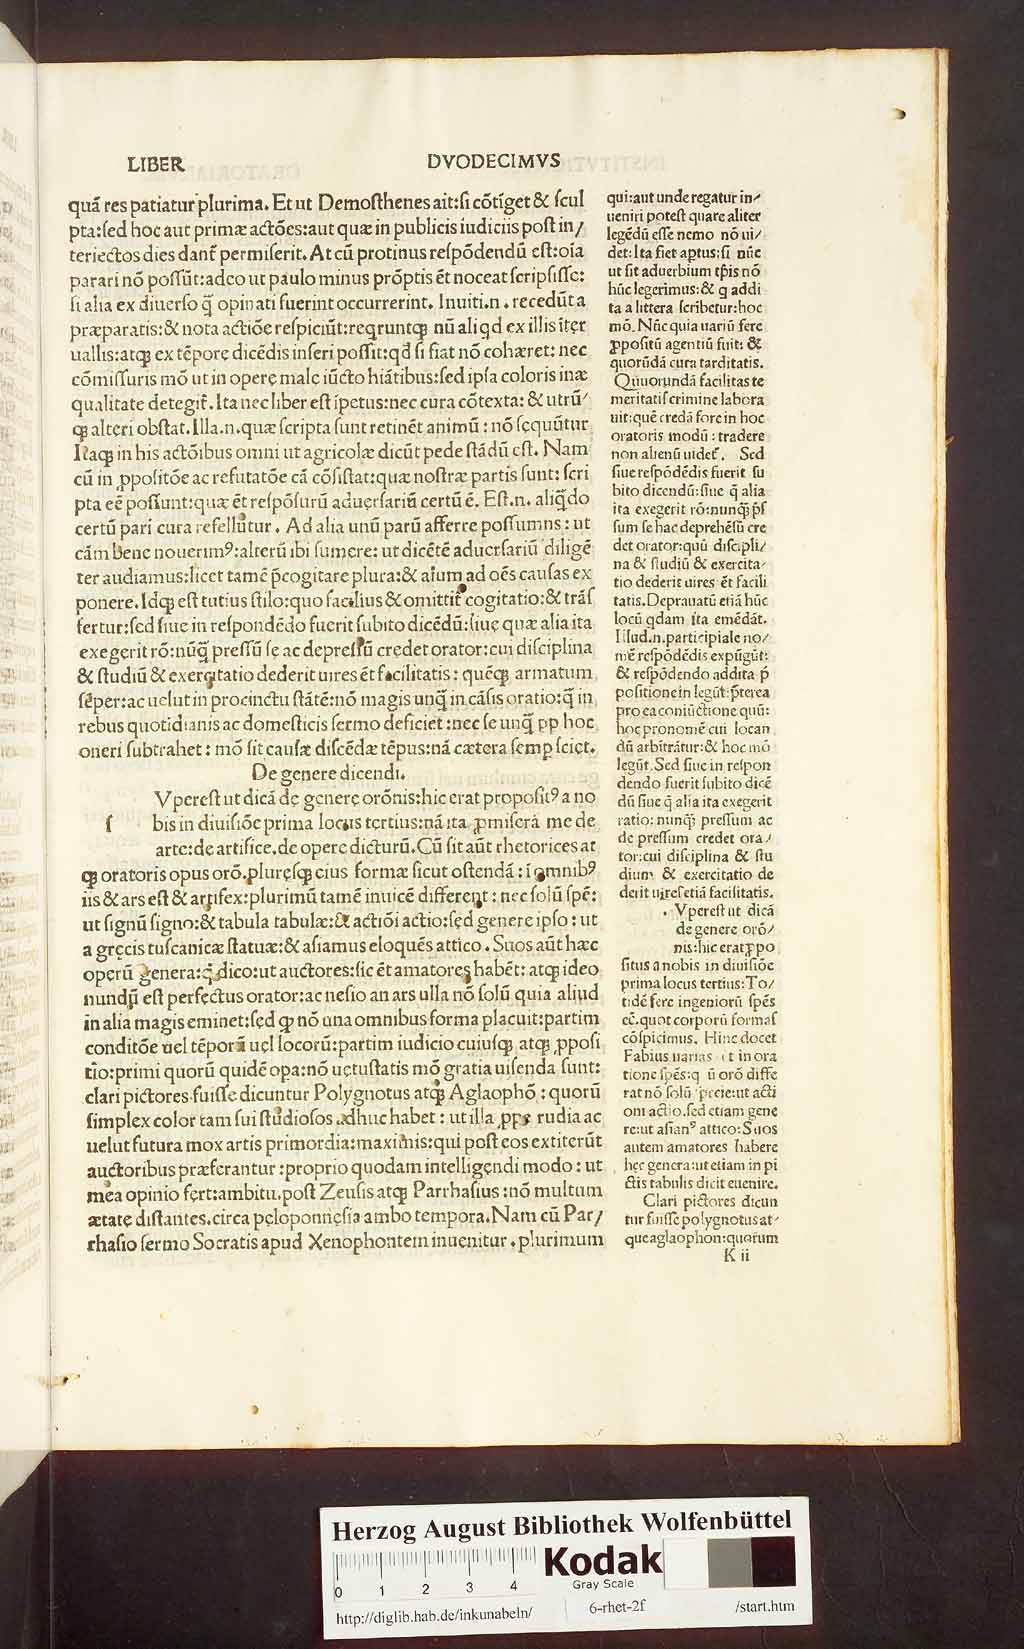 LIBER DVODECIMVS
quā res patiatur plurima. Et ut Demosthenes ait: si cōtiget & scul
pta: sed hoc aut primæ actōes: aut quæ in publicis iudiciis post in/
teriectos dies dant permiserit. At cū protinus respōdendū est: oīa
parari nō possūt: adeo ut paulo minus prōptis ēt noceat scripsisse:
si alia ex diuerso q̄ opinati fuerint occurrerint. Inuiti .n. recedūt a
præparatis: & nota actiōe respiciūt: reqruntq; nū aliqd ex illis īter
uallis: atq; ex tēpore dicēdis inseri possit: qd si fiat nō cohæret: nec
cōmissuris mō ut in opere male iūcto hiātibus: sed ipsa coloris inæ
qualitate detegit̄. Ita nec liber est īpetus: nec cura cōtexta: & utrū/
q; alteri obstat. Illa .n. quæ scripta sunt retinēt animū: nō sequūtur
Itaq; in his actōibus omni ut agricolæ dicūt pede stādū est. Nam
cū in ꝓpositōe ac refutatōe cā cōsistat: quæ nostræ partis sunt: scri
pta eē possunt: quæ ēt respōsurū aduersariū certū ē. Est .n. aliq̄do
certū pari cura refellūtur. Ad alia unū parū afferre possumns: ut
cām bene nouerimꝰ: alterū ibi sumere: ut dicētē aduersariū diligē
ter audiamus: licet tamē p̄cogitare plura: & aīum ad oēs causas ex
ponere. Idq; est tutius stilo: quo facilius & omittit̄ cogitatio: & trās
fertur: sed siue in respondēdo fuerit subito dicēdū: siue quæ alia ita
exegerit rō: nūq̄ pressū se ac depressū credet orator: cui disciplina
& studiū & exercitatio dederit uires ēt facilitatis: quēq; armatum
sēper: ac uelut in procinctu stātē: nō magis unq̄ in cāsis oratio: q̄ in
rebus quotidianis ac domesticis sermo deficiet: nec se unq̄ ꝓp hoc
oneri subtrahet: mō sit causæ discēdæ tēpus: nā cætera semp sciet.
De genere dicendi.
Vperest ut dicā de genere orōnis: hic erat propositꝰ a no
s bis in diuisiōe prima locus tertius: nā ita ꝓmiserā me de
arte: de artifice. de opere dicturū. Cū sit aūt rhetorices at
q; oratoris opus orō. pluresq; eius formæ sicut ostendā: ī omnibꝰ
iis & ars est & artifex: plurimū tamē inuicē different: nec solū spē:
ut signū signo: & tabula tabulæ: & actiōi actio: sed genere ipso: ut
a grecis tuscanicæ statuæ: & asiamus eloquēs attico. Suos aūt hæc
operū genera: q̄ dico: ut auctores: sic ēt amatores habēt: atq; ideo
nundū est perfectus orator: ac nesio an ars ulla nō solū quia aliud
in alia magis eminet: sed q; nō una omnibus forma placuit: partim
conditōe uel tēporū uel locorū: partim iudicio cuiusq; atq; ꝓposi
tio: primi quorū quidē opa: nō uetustatis mō gratia uisenda sunt:
clari pictores fuisse dicuntur Polygnotus atq; Aglaophō: quorū
simplex color tam sui studiosos adhuc habet: ut illa ꝓpe rudia ac
uelut futura mox artis primordia: maximis: qui post eos extiterūt
auctoribus præferantur: proprio quodam intelligendi modo: ut
mea opinio fert: ambitu. post Zeusis atq; Parrhasius: nō multum
ætate distantes. circa peloponnesia ambo tempora. Nam cū Par/
rhasio sermo Socratis apud Xenophontem inuenitur. plurimum
qui: aut unde regatur in/
ueniri potest quare aliter
legēdū esse nemo nō ui/
det: Ita fiet aptus: si nūc
ut sit aduerbium tp̄is nō
hūc legerimus: & q addi
ta a littera scribetur: hoc
mō. Nūc quia uariū fere
ꝓpositū agentiū fuit: &
quorūdā cura tarditatis.
Quorundā facilitas te
meritatis crimine labora
uit: quē credā fore in hoc
oratoris modū: tradere
non alienū uidet̄. Sed
siue respōdēdis fuerit su
bito dicendū: siue q̄ alia
ita exegerit rō: nunq̄ p̄s
sum se hac deprehēsū cre
det orator: quū discipli/
na & studiū & exercita/
tio dederit uires ēt facili
tatis. Deprauatū etiā hūc
locū qdam ita emēdāt.
Illud .n. participiale no/
mē respōdēdis expūgūt:
& respōdendo addita p̄
positione in legūt: p̄terea
pro ea coniūctione quū:
hoc pronomē cui locan
dū arbitrātur: & hoc mō
legūt. Sed siue in respon
dendo fuerit subito dicē
dū siue q̄ alia ita exegerit
ratio: nunq̄: pressum ac
de pressum credet ora/
tor: cui disciplina & stu
dium & exercitatio de
derit uires etiā facilitatis.
Vperest ut dicā
de genere orō/
nis: hic erat ꝓpo
situs a nobis in diuisiōe
prima locus tertius: To/
tidē fere ingeniorū spēs
eē. quot corporū formas
cōspicimus. Hinc docet
Fabius uarias et in ora
tione spēs: q ū orō diffe
rat nō solū specie: ut acti
oni actio. sed etiam gene
re: ut asianꝰ attico: Suos
autem amatores habere
hec genera: ut etiam in pi
ctis tabulis dicit euenire.
Clari pictores dicun
tur fuisse polygnotus at/
que aglaophon: quorum
K ii
Herzog August Bibliothek Wolfenbüttel
0 1 2 3 4
Kodak
Gray Scale
http://diglib.hab.de/inkunabeln/ 6-rhet-2f /start.htm